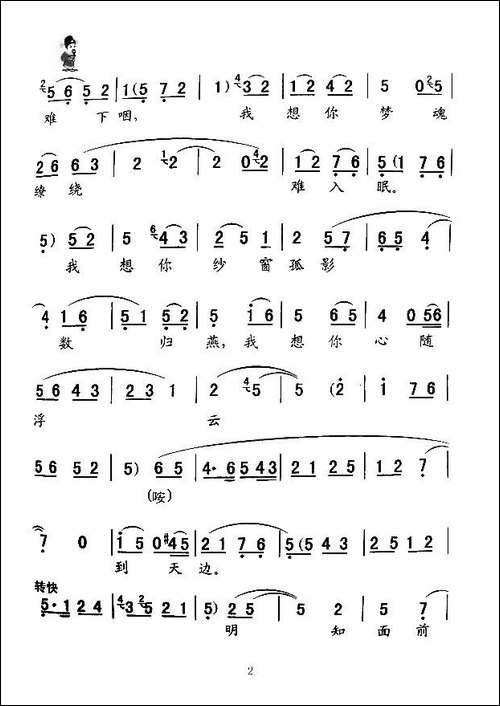 5 6 5 2 | 1 (5 7 2 | 1) 3 2 | 1 2 4 2 | 5 5 | 5 0 5
难 下咽, 我 想 你 梦 魂
2 6 6 3 | 2 2 | 2 0 2 | 1 2 7 6 | 5 (1 7 6
缭 绕 难 入 眠。
5) 5 2 | 5 4 3 | 2 5 1 | 2 5 7 | 6 5 4
我 想 你 纱 窗 孤 影
4 1 6 | 5 1 5 2 | 5 1 6 | 5 6 5 | 4 0 5 6
数 归 燕, 我 想 你 心 随
5 6 4 3 | 2 3 1 | 2 5 | 5 (2 | 1 7 6
浮 云
5 6 5 2 | 5) 6 5 | 4· 6 5 4 3 | 2 1 2 5 | 1 2 7
(唉)
7 0 | 1 5 0 4 5 | 2 1 7 6 | 5 (5 4 3 | 2 5 1 2
到 天 边。
转快
5· 1 2 4 | 3 5 2 1 | 5) 2 5 | 5 2 | 5 7
明 知 面 前
2